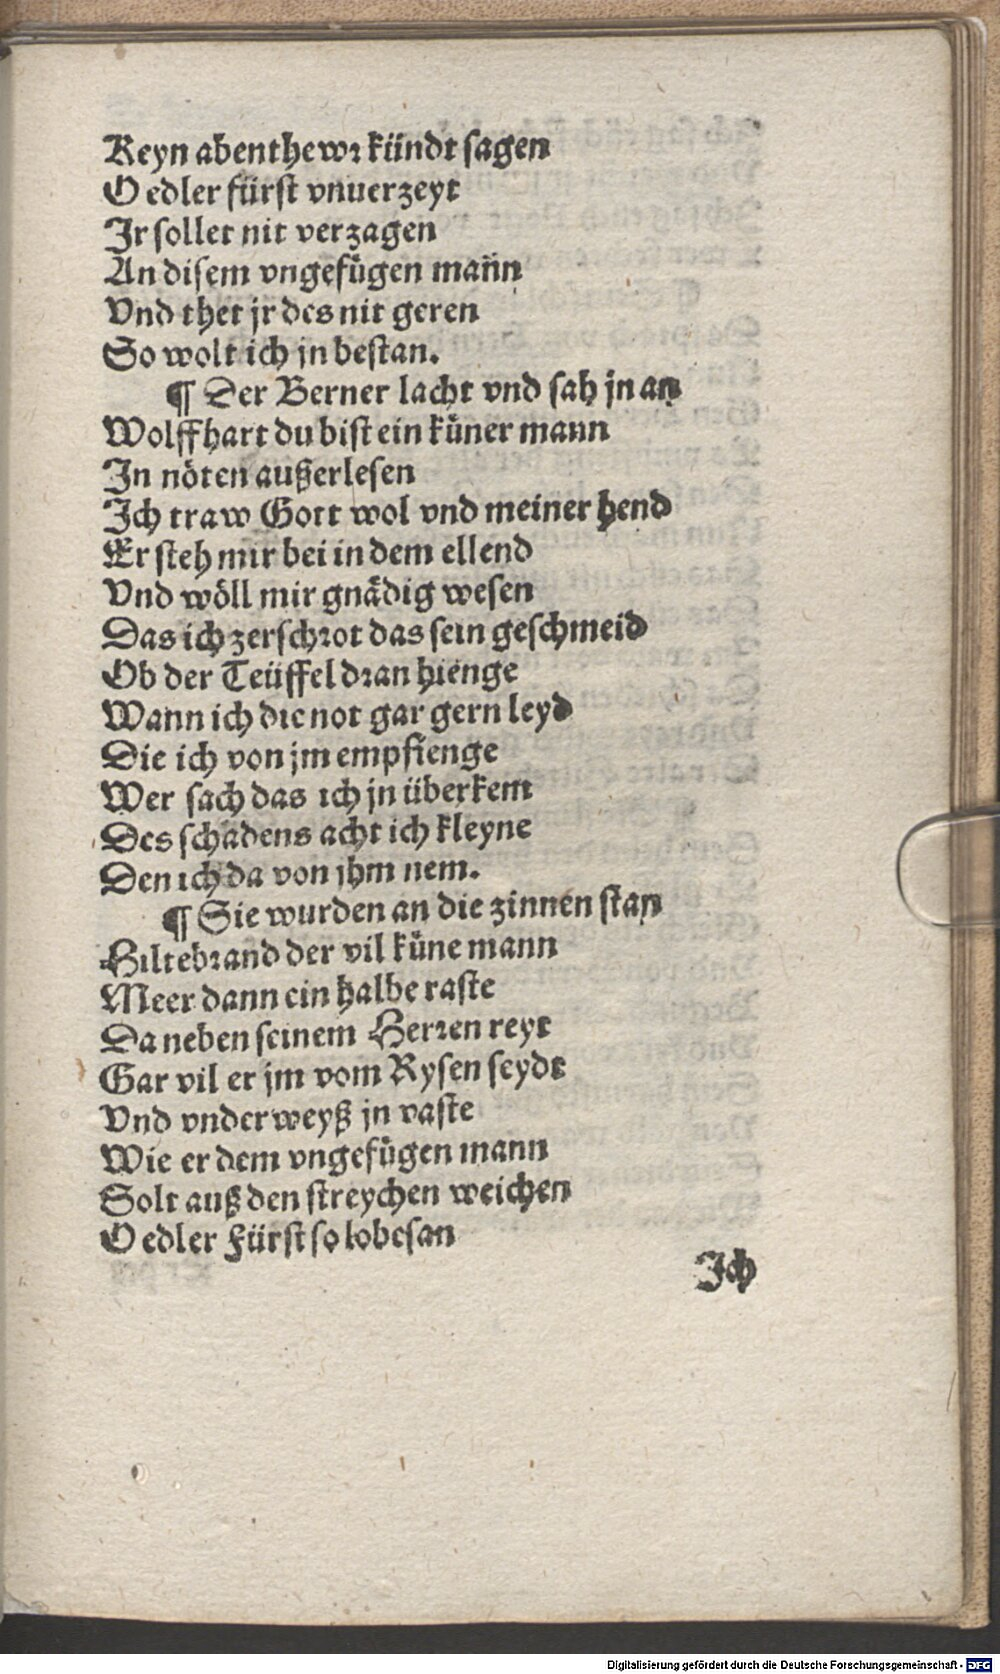 Keyn abenthewr kündt sagen
O edler fürst vnuerzeyt
Ir sollet nit verzagen
An disem vngefügen mañn
Vnd thet jr des nit geren
So wolt ich jn bestan.
¶ Der Berner lacht vnd sah jn an
Wolffhart du bist ein küner mann
In nöten außerlesen
Ich traw Gott wol vnd meiner hend
Er steh mir bei in dem ellend
Vnd wöll mir gnädig wesen
Das ich zerschrot das sein geschmeid
Ob der Teüffel dran hienge
Wann ich die not gar gern leyd
Die ich von jm empfienge
Wer sach das ich jn überkem
Des schadens acht ich kleyne
Den ich da von jhm nem.
¶ Sie wurden an die zinnen stan
Hiltebrand der vil küne mann
Meer dann ein halbe raste
Da neben seinem Herren reyt
Gar vil er jm vom Rysen seydt
Vnd vnderweyß jn vaste
Wie er dem vngefügen mann
Solt auß den streychen weichen
O edler Fürst so lobesan
Ich
Digitalisierung gefördert durch die Deutsche Forschungsgemeinschaft - DFG